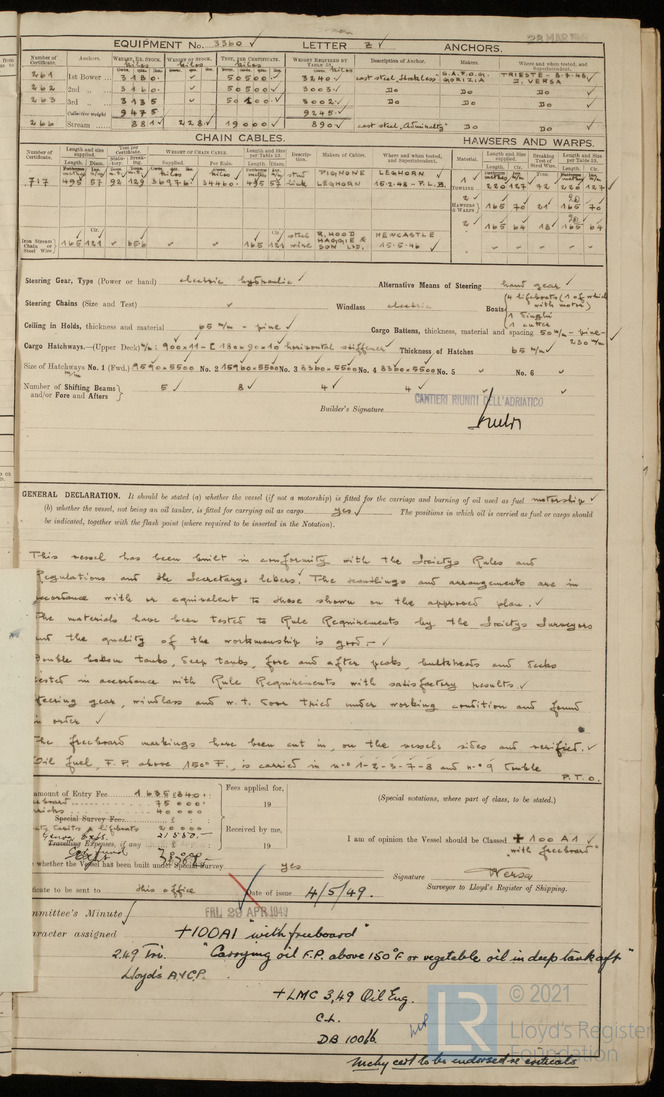 28 MAR
EQUIPMENT No. 3360 ✓ LETTER Z ✓ ANCHORS.
Number of Certificate. Anchors. WEIGHT, EX. STOCK. WEIGHT OF STOCK. TEST, PER CERTIFICATE. WEIGHT REQUIRED BY TABLE 53. Description of Anchor. Makers. Where and when tested, and Superintendent.
261 1st Bower 3180 50500 3240 cast steel stockless S.A.F.O.G. GORIZIA TRIESTE
262 2nd „ 3160 50500 3003 Do Do Do
263 3rd „ 3135 50100 3002 Do Do Do
Collective weight 9475 9245
266 Stream 881 228 19000 890 cast steel "Admiralty" Do Do
CHAIN CABLES. HAWSERS AND WARPS.
Number of Certificate. Length and size supplied. Test per Certificate. WEIGHT OF CHAIN CABLE. Length and Size per Table 53. Description. Makers of Cables. Where and when tested, and Superintendent. Material. Length and Size supplied. Breaking Test of Steel Wire. Length and Size per Table 53.
717 495 57 92 129 36276 34460 495 57 stud link PIGNONE LEGHORN LEGHORN 15-2-48 - P.L.B. TOWLING 220 127 72 220 127
HAWSERS & WARPS 165 70 21 165 70
2 165 64 18 165 64
Iron Stream Chain or Steel Wire 165 121 656 165 121 steel wire R. HOOD HAGGIE & SON LTD. NEWCASTLE 15-5-46
Steering Gear, Type (Power or hand) electric hydraulic ✓ Alternative Means of Steering hand gear ✓
Steering Chains (Size and Test) ✓ Windlass electric Boats 4 lifeboats (1 of which with motor)
1 cutter
Ceiling in Holds, thickness and material 65 m/m - pine ✓ Cargo Battens, thickness, material and spacing 50 m/m - pine - 230 m/m
Cargo Hatchways.—(Upper Deck) horizontal stiffener Thickness of Hatches 65 m/m ✓
Size of Hatchways No. 1 (Fwd.) No. 2 No. 3 8360×5500 No. 4 8360×5500 No. 5 ✓ No. 6 ✓
Number of Shifting Beams and/or Fore and Afters } 5 ✓ 8 ✓ 4 ✓ 4 ✓
CANTIERI RIUNITI DELL'ADRIATICO
Builder's Signature
GENERAL DECLARATION. It should be stated (a) whether the vessel (if not a motorship) is fitted for the carriage and burning of oil used as fuel motorship ✓
(b) whether the vessel, not being an oil tanker, is fitted for carrying oil as cargo yes ✓ The positions in which oil is carried as fuel or cargo should
be indicated, together with the flash point (where required to be inserted in the Notation).
This vessel has been built in conformity with the Societys Rules and
Regulations and the Secretarys letters. The scantlings and arrangements are in
accordance with or equivalent to those shown on the approved plan. ✓
The materials have been tested to Rule Requirements by the Societys Surveyors
and the quality of the workmanship is good. - ✓
Double bottom tanks, deep tanks, fore and after peaks, bulkheads and decks
tested in accordance with Rule Requirements with satisfactory results. ✓
Steering gear, windlass and w.t. door tried under working condition and found
in order ✓
The freeboard markings have been cut in, on the vessels sides and verified. ✓
Oil fuel, F.P. above 150° F., is carried in n.os 1-2-3-7-8 and n.o 9 double
P.T.O.
amount of Entry Fee 1635840
75000
40000
Special Survey Fee
20000
Travelling Expenses, if any
Fees applied for,
19
Received by me,
19
(Special notations, where part of class, to be stated.)
I am of opinion the Vessel should be Classed ✠ 100 A1 ✓
"with freeboard"
whether the Vessel has been built under Special Survey yes
Signature
Surveyor to Lloyd's Register of Shipping.
icate to be sent to this office Date of issue 4/5/49.
mmittee's Minute FRI. 29 APR 1949
aracter assigned +100A1 "with freeboard"
2.49 Tri. "Carrying oil F.P. above 150°F or vegetable oil in deep tank aft"
Lloyd's A&CP.
+LMC 3,49 Oil Eng.
C.L.
DB 100 lb.
Mchy cert to be endorsed re criticals
LR © 2021
Lloyd's Register
Foundation